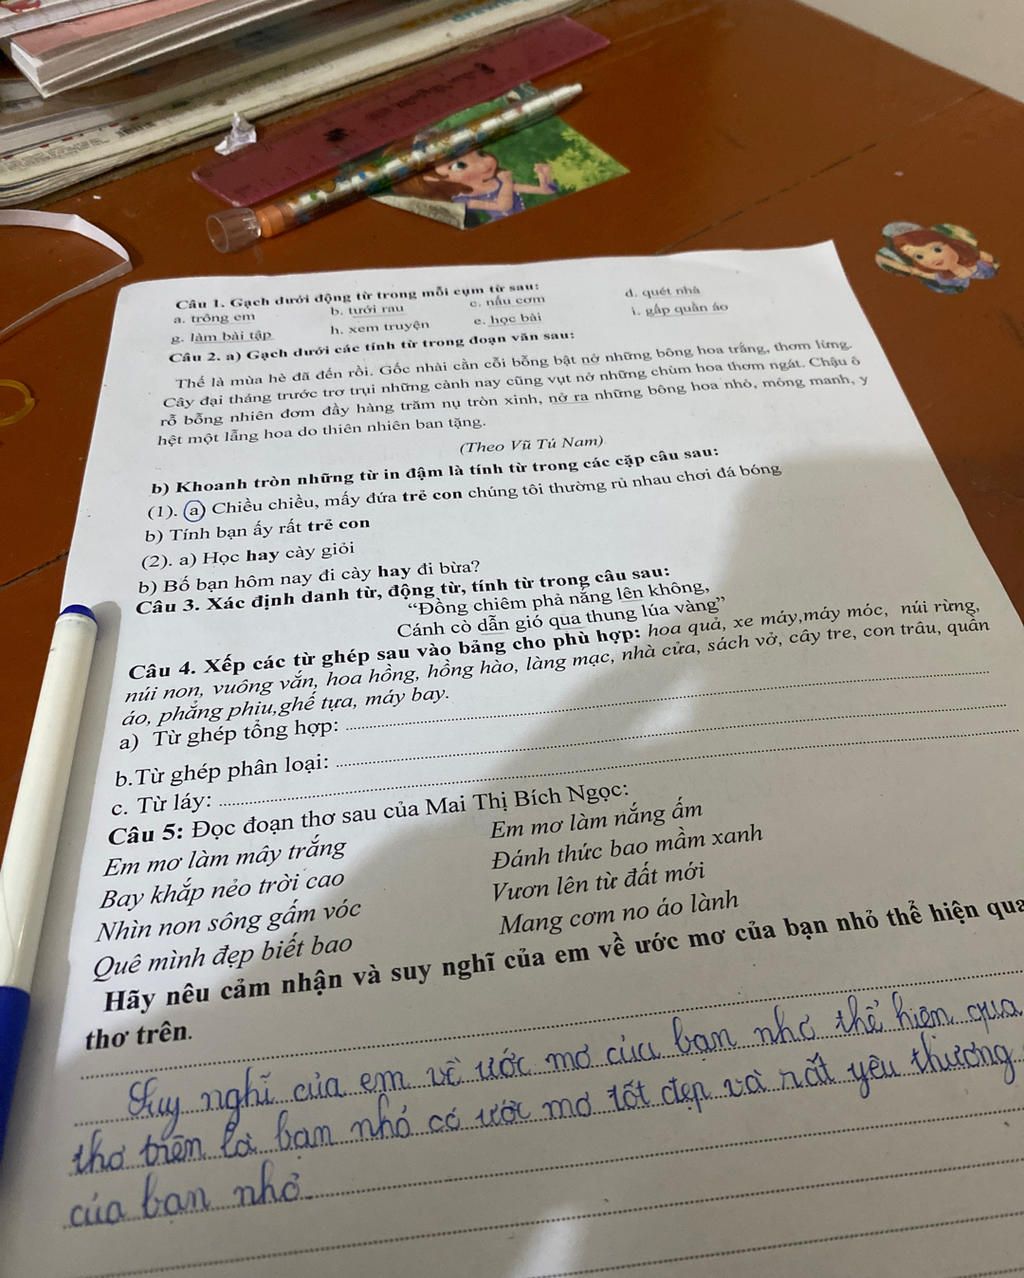 Câu 1. Gạch dưới động từ trong mỗi cụm từ sau:
a. trông em b. tưới rau c. nấu cơm d. quét nhà
g. làm bài tập h. xem truyện e. học bài i. gấp quần áo
Câu 2. a) Gạch dưới các tính từ trong đoạn văn sau:
Thế là mùa hè đã đến rồi. Gốc nhài cằn cỗi bỗng bật nở những bông hoa trắng, thơm lừng.
Cây đại tháng trước trơ trụi những cành nay cũng vụt nở những chùm hoa thơm ngát. Chậu ô
rỗ bỗng nhiên đơm đầy hàng trăm nụ tròn xinh, nở ra những bông hoa nhỏ, mỏng manh, y
hệt một lẵng hoa do thiên nhiên ban tặng.
(Theo Vũ Tú Nam)
b) Khoanh tròn những từ in đậm là tính từ trong các cặp câu sau:
(1). a) Chiều chiều, mấy đứa trẻ con chúng tôi thường rủ nhau chơi đá bóng
b) Tính bạn ấy rất trẻ con
(2). a) Học hay cày giỏi
b) Bố bạn hôm nay đi cày hay đi bừa?
Câu 3. Xác định danh từ, động từ, tính từ trong câu sau:
“Đồng chiêm phả nắng lên không,
Cánh cò dẫn gió qua thung lúa vàng”
Câu 4. Xếp các từ ghép sau vào bảng cho phù hợp: hoa quả, xe máy,máy móc, núi rừng,
núi non, vuông vắn, hoa hồng, hồng hào, làng mạc, nhà cửa, sách vở, cây tre, con trâu, quần
áo, phẳng phiu,ghế tựa, máy bay.
a) Từ ghép tổng hợp:
b.Từ ghép phân loại:
c. Từ láy:
Câu 5: Đọc đoạn thơ sau của Mai Thị Bích Ngọc:
Em mơ làm mây trắng
Bay khắp nẻo trời cao
Nhìn non sông gấm vóc
Quê mình đẹp biết bao
Em mơ làm nắng ấm
Đánh thức bao mầm xanh
Vươn lên từ đất mới
Mang cơm no áo lành
Hãy nêu cảm nhận và suy nghĩ của em về ước mơ của bạn nhỏ thể hiện qua
thơ trên.
Suy nghĩ của em về ước mơ của bạn nhỏ thể hiện qua
thơ trên là bạn nhỏ có ước mơ tốt đẹp và rất yêu thương
của bạn nhỏ.